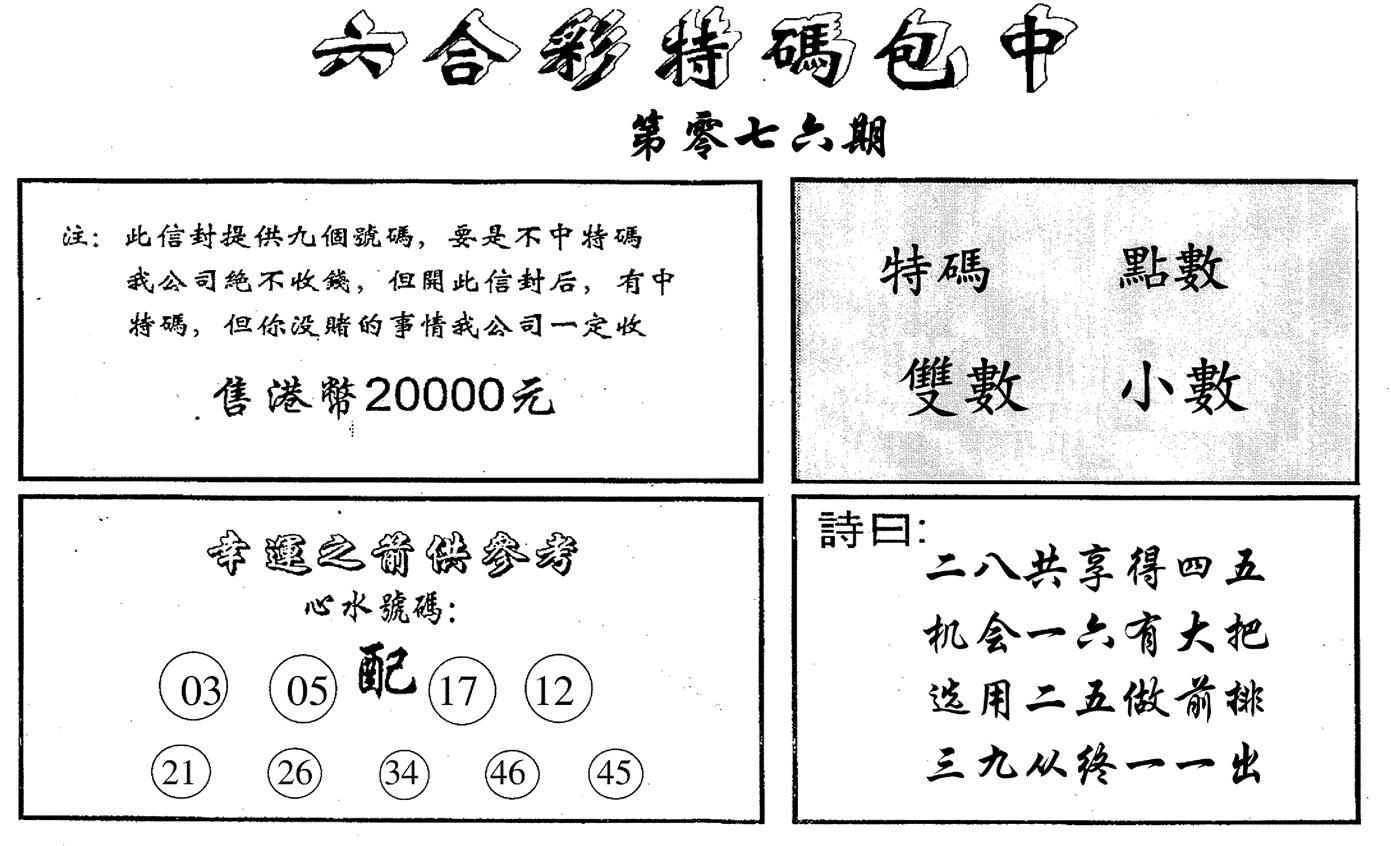 六合彩特碼包中
第零七六期
注：此信封提供九個號碼，要是不中特碼
我公司絕不收錢，但開此信封后，有中
特碼，但你没賭的事情我公司一定收
售港幣20000元
特碼 點數
雙數 小數
幸運之箭供參考
心水號碼：
03 05 配 17 12
21 26 34 46 45
詩曰：
二八共享得四五
机会一六有大把
选用二五做前排
三九从终一一出